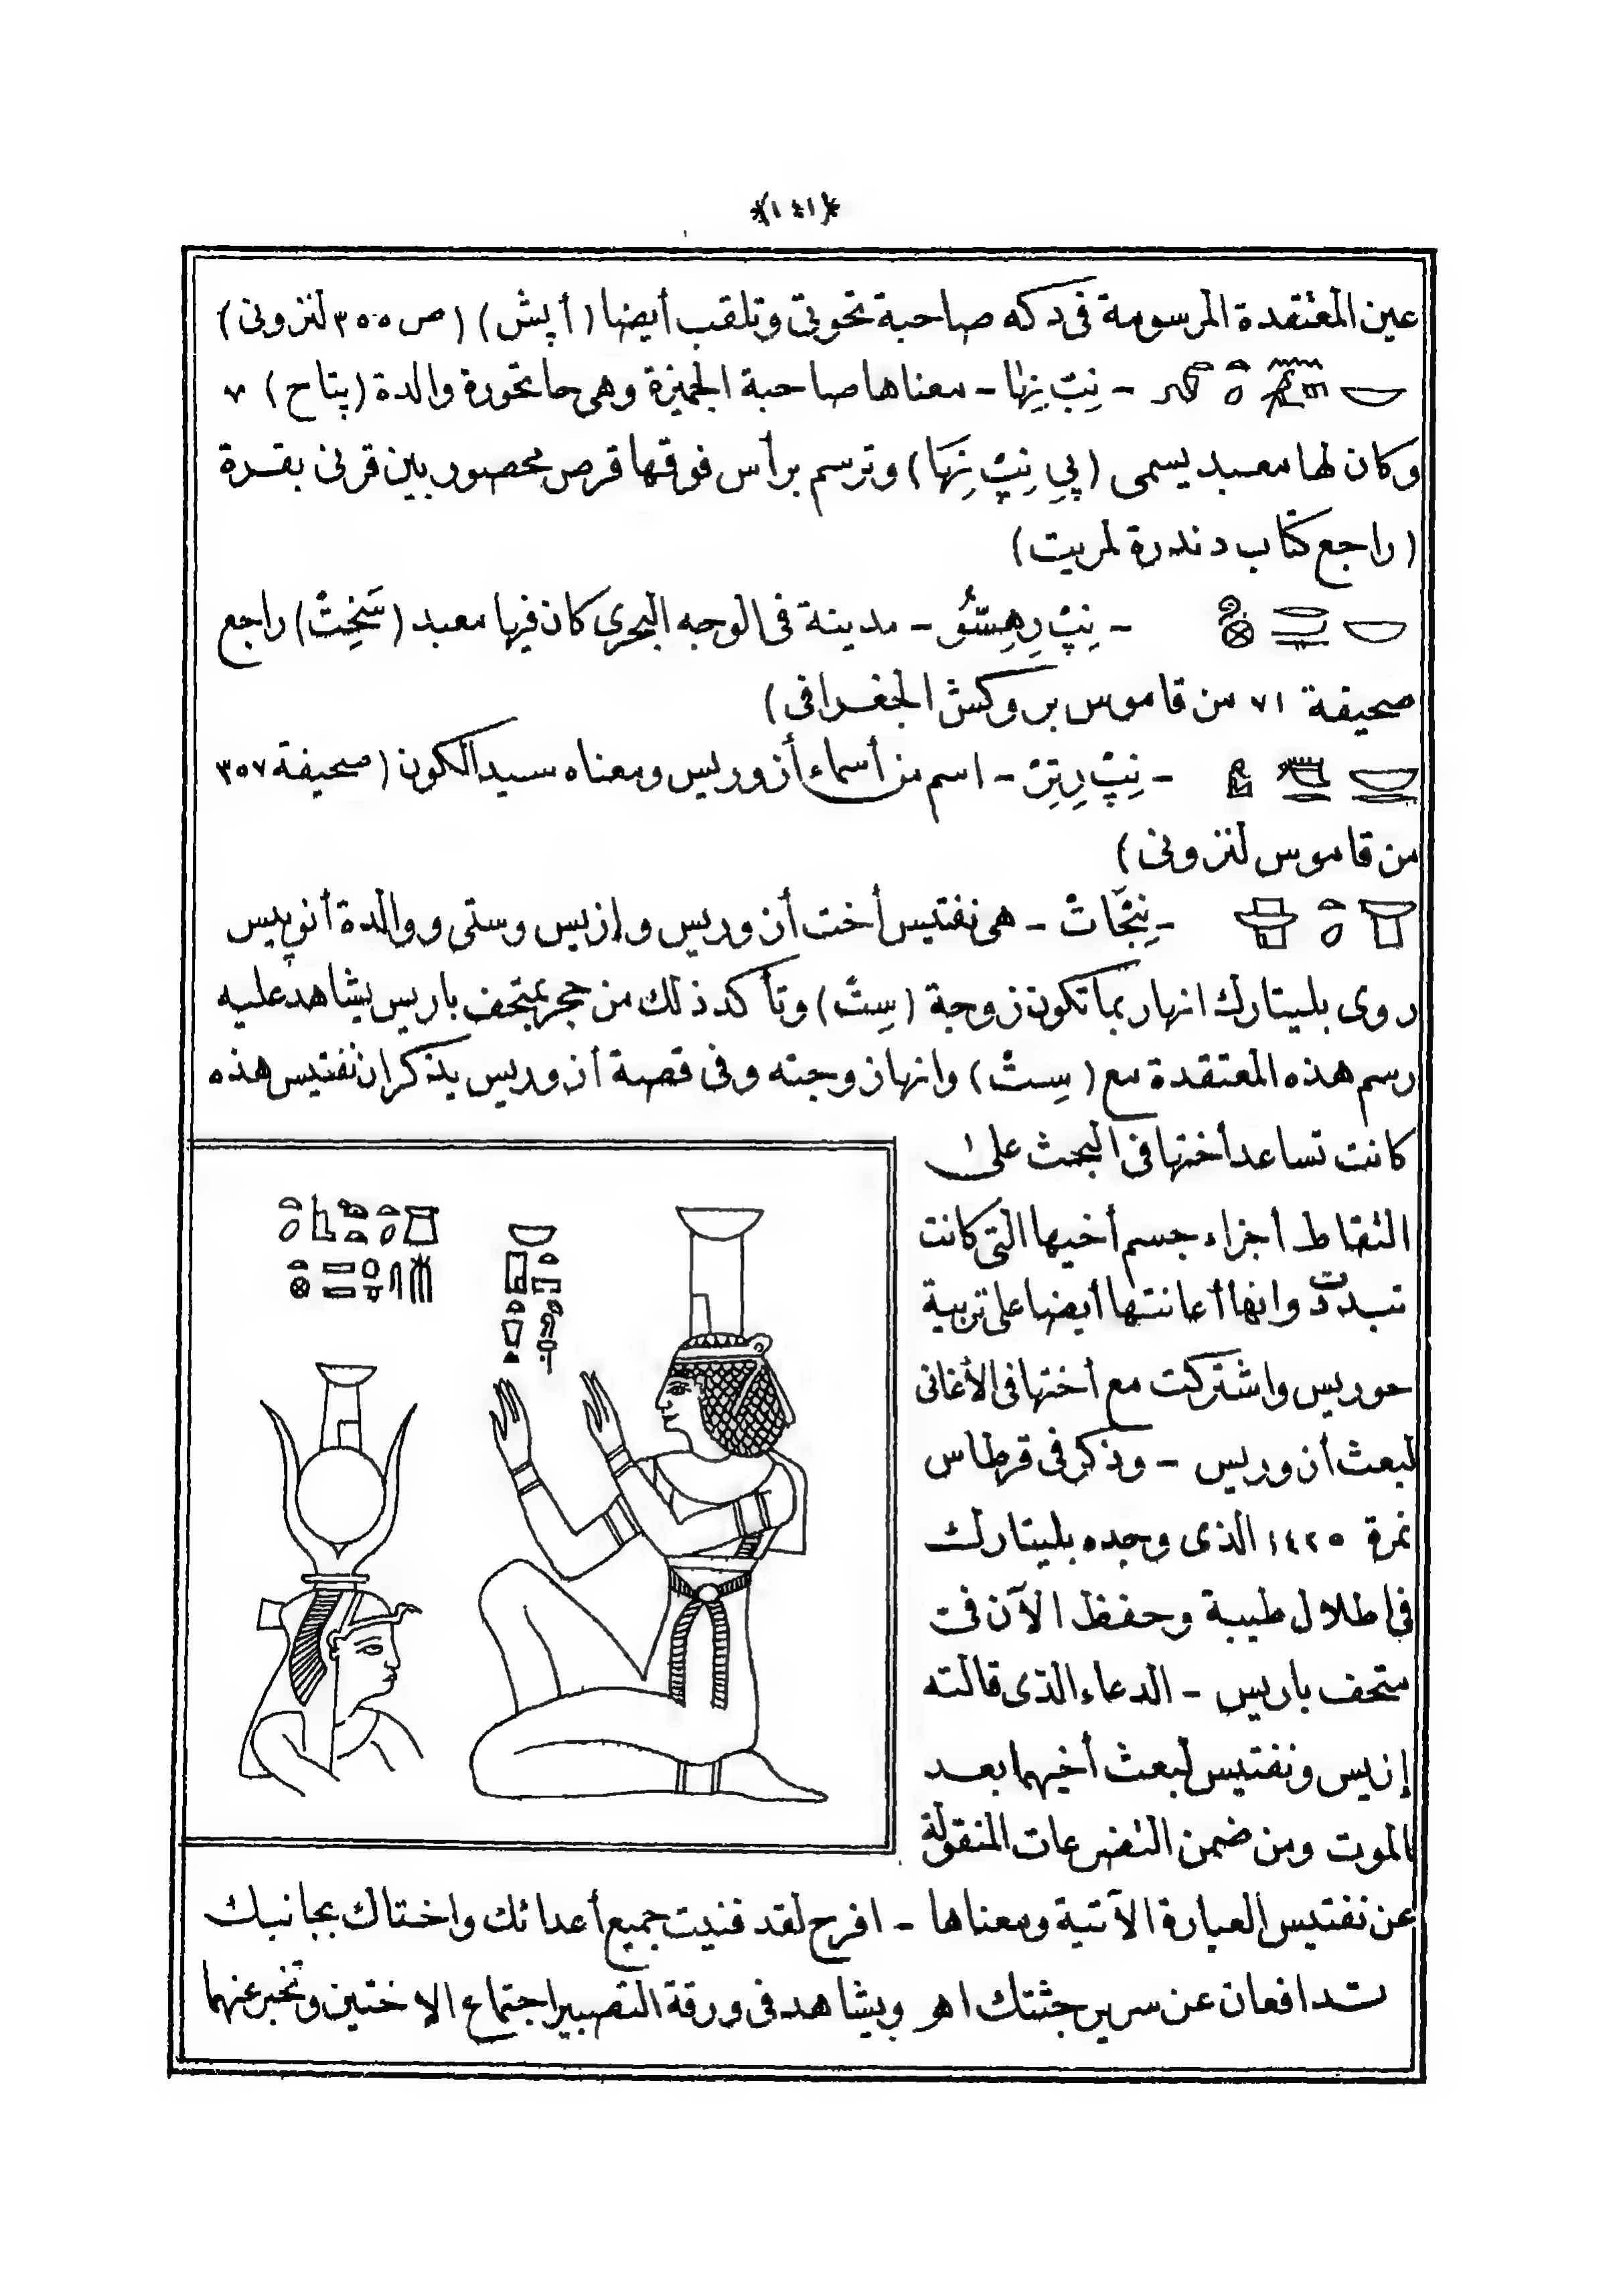 ﴿١٤١﴾
عين المعتقدة المرسومة فى دكه صاحبة تحوتى وتلقب أيضا (أپش) (ص ٣٥٥ لنزونى)
- نِبْ نِهَا - معناها صاحبة الجميزة وهى حاتحورة والدة (پتاح) ٧
وكان لها معبد يسمى (پِي نِبْ نِهَا) وترسم برأس فوقها قرص محصور بين قرنى بقرة
(راجع كتاب دندرة لمريت)
- نِبْ رِهِسُّو - مدينة فى الوجه البحرى كان فيها معبد (سَخِتْ) راجع
صحيفة ٧١ من قاموس بروكش الجغرافى)
- نِبْ رِتِرْ - اسم من أسماء أزوريس ومعناه سيد الكون (صحيفة ٣٥٧
من قاموس لنزونى)
- نِبْحَاتْ - هى نفتيس أخت أزوريس وإزيس وستى ووالدة أنوپيس
روى بليتارك انها ربما تكون زوجة (سِتْ) وتأكد ذلك من حجر بمتحف باريس يشاهد عليه
رسم هذه المعتقدة مع (سِتْ) وانها زوجته وفى قصة أزوريس يذكر ان نفتيس هذه
كانت تساعد أختها فى البحث على
التقاط أجزاء جسم أخيها التى كانت
تبددت وانها أعانتها أيضا على تربية
حوريس واشتركت مع أختها فى الأغانى
لبعث أزوريس - وذكر فى قرطاس
نمرة ١٤٢٥ الذى وجده بليتارك
فى اطلال طيبة وحفظ الآن فى
متحف باريس - الدعاء الذى قالته
إزيس ونفتيس لبعث أخيهما بعد
الموت ومن ضمن التضرعات المنقولة
عن نفتيس العبارة الآتية ومعناها - افرح لقد فنيت جميع أعدائك واختاك بجانبيك
تدافعان عن سرير جثتك اهو ويشاهد فى ورقة التصبير اجتماع الاختين وتخبر عنهما